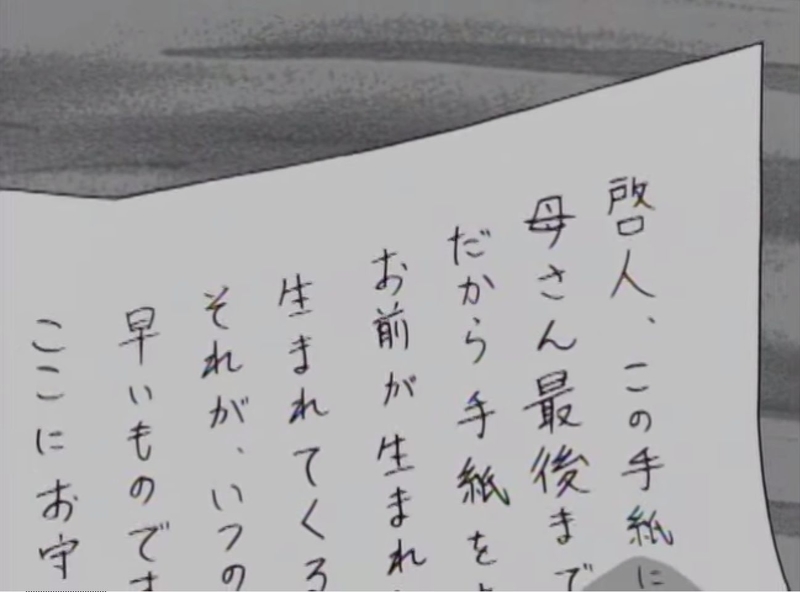 啓人、この手紙に
母さん最後まで
だから手紙を
お前が生まれ
生まれてくる
それが、いつの
早いものです
ここにお守